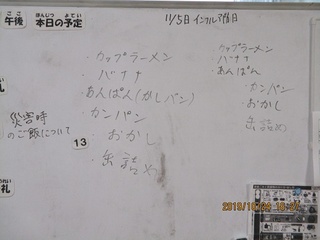 ごご
午後
ほんじつ よてい
本日の予定
11/5日
・カップラーメン
・バナナ
・あんぱん(かしパン)
・カンパン
・おかし
・缶詰め
災害時
のご飯について
13
・カップラーメン
・バナナ
・あんぱん
・カンパン
・おかし
・缶詰め
礼